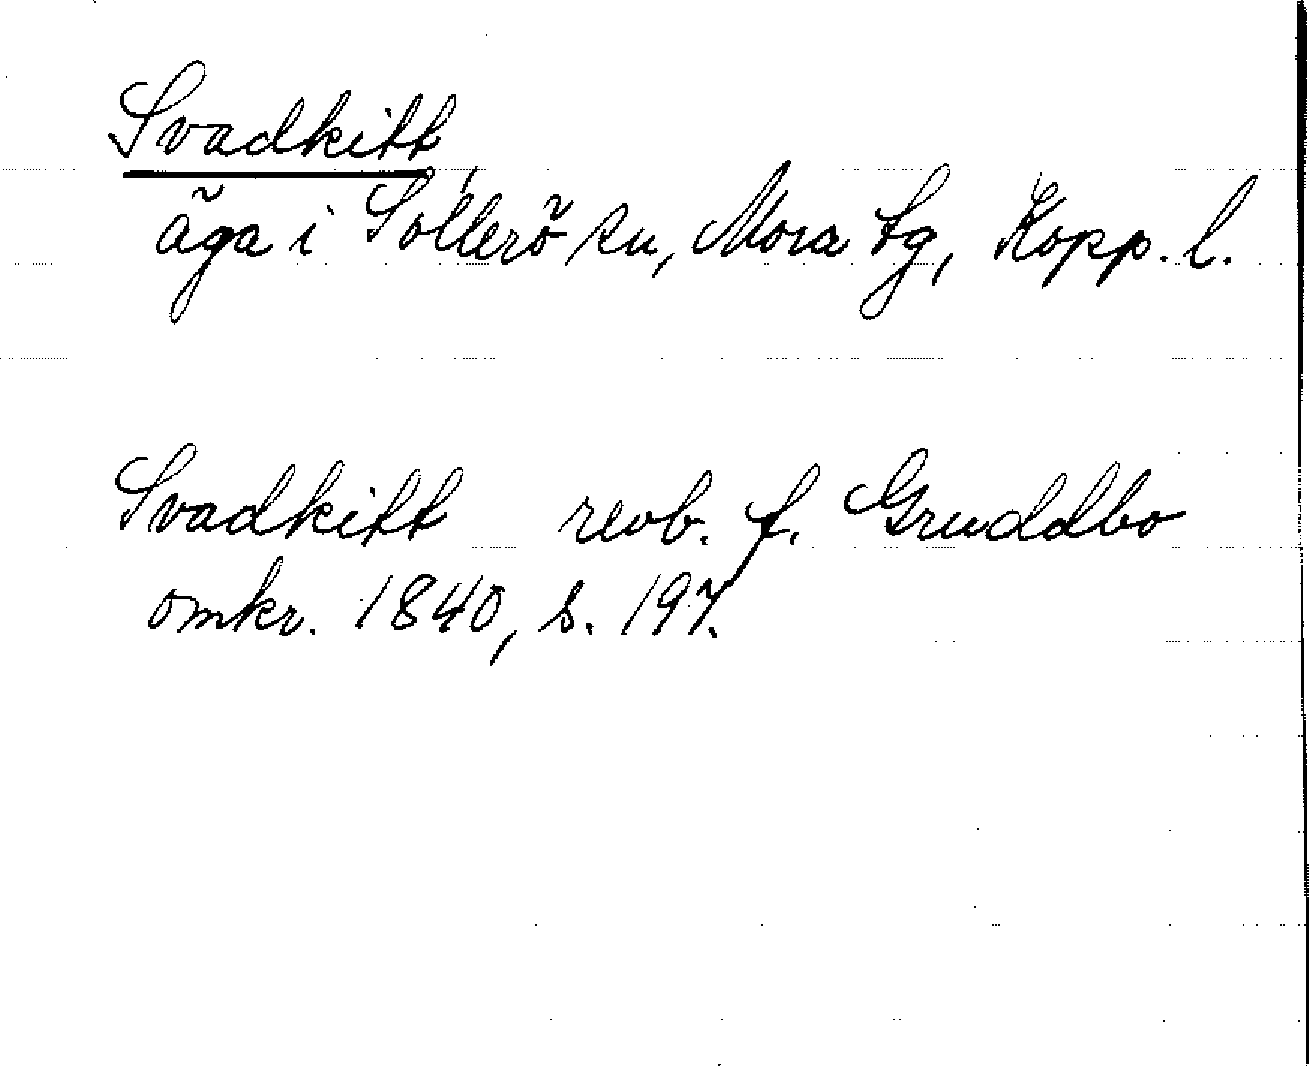 Svadkitt
äga i Sollerö sn, Mora tg, Kopp. l.
Svadkitt revb. f. Gruddbo
omkr. 1840, s. 197.